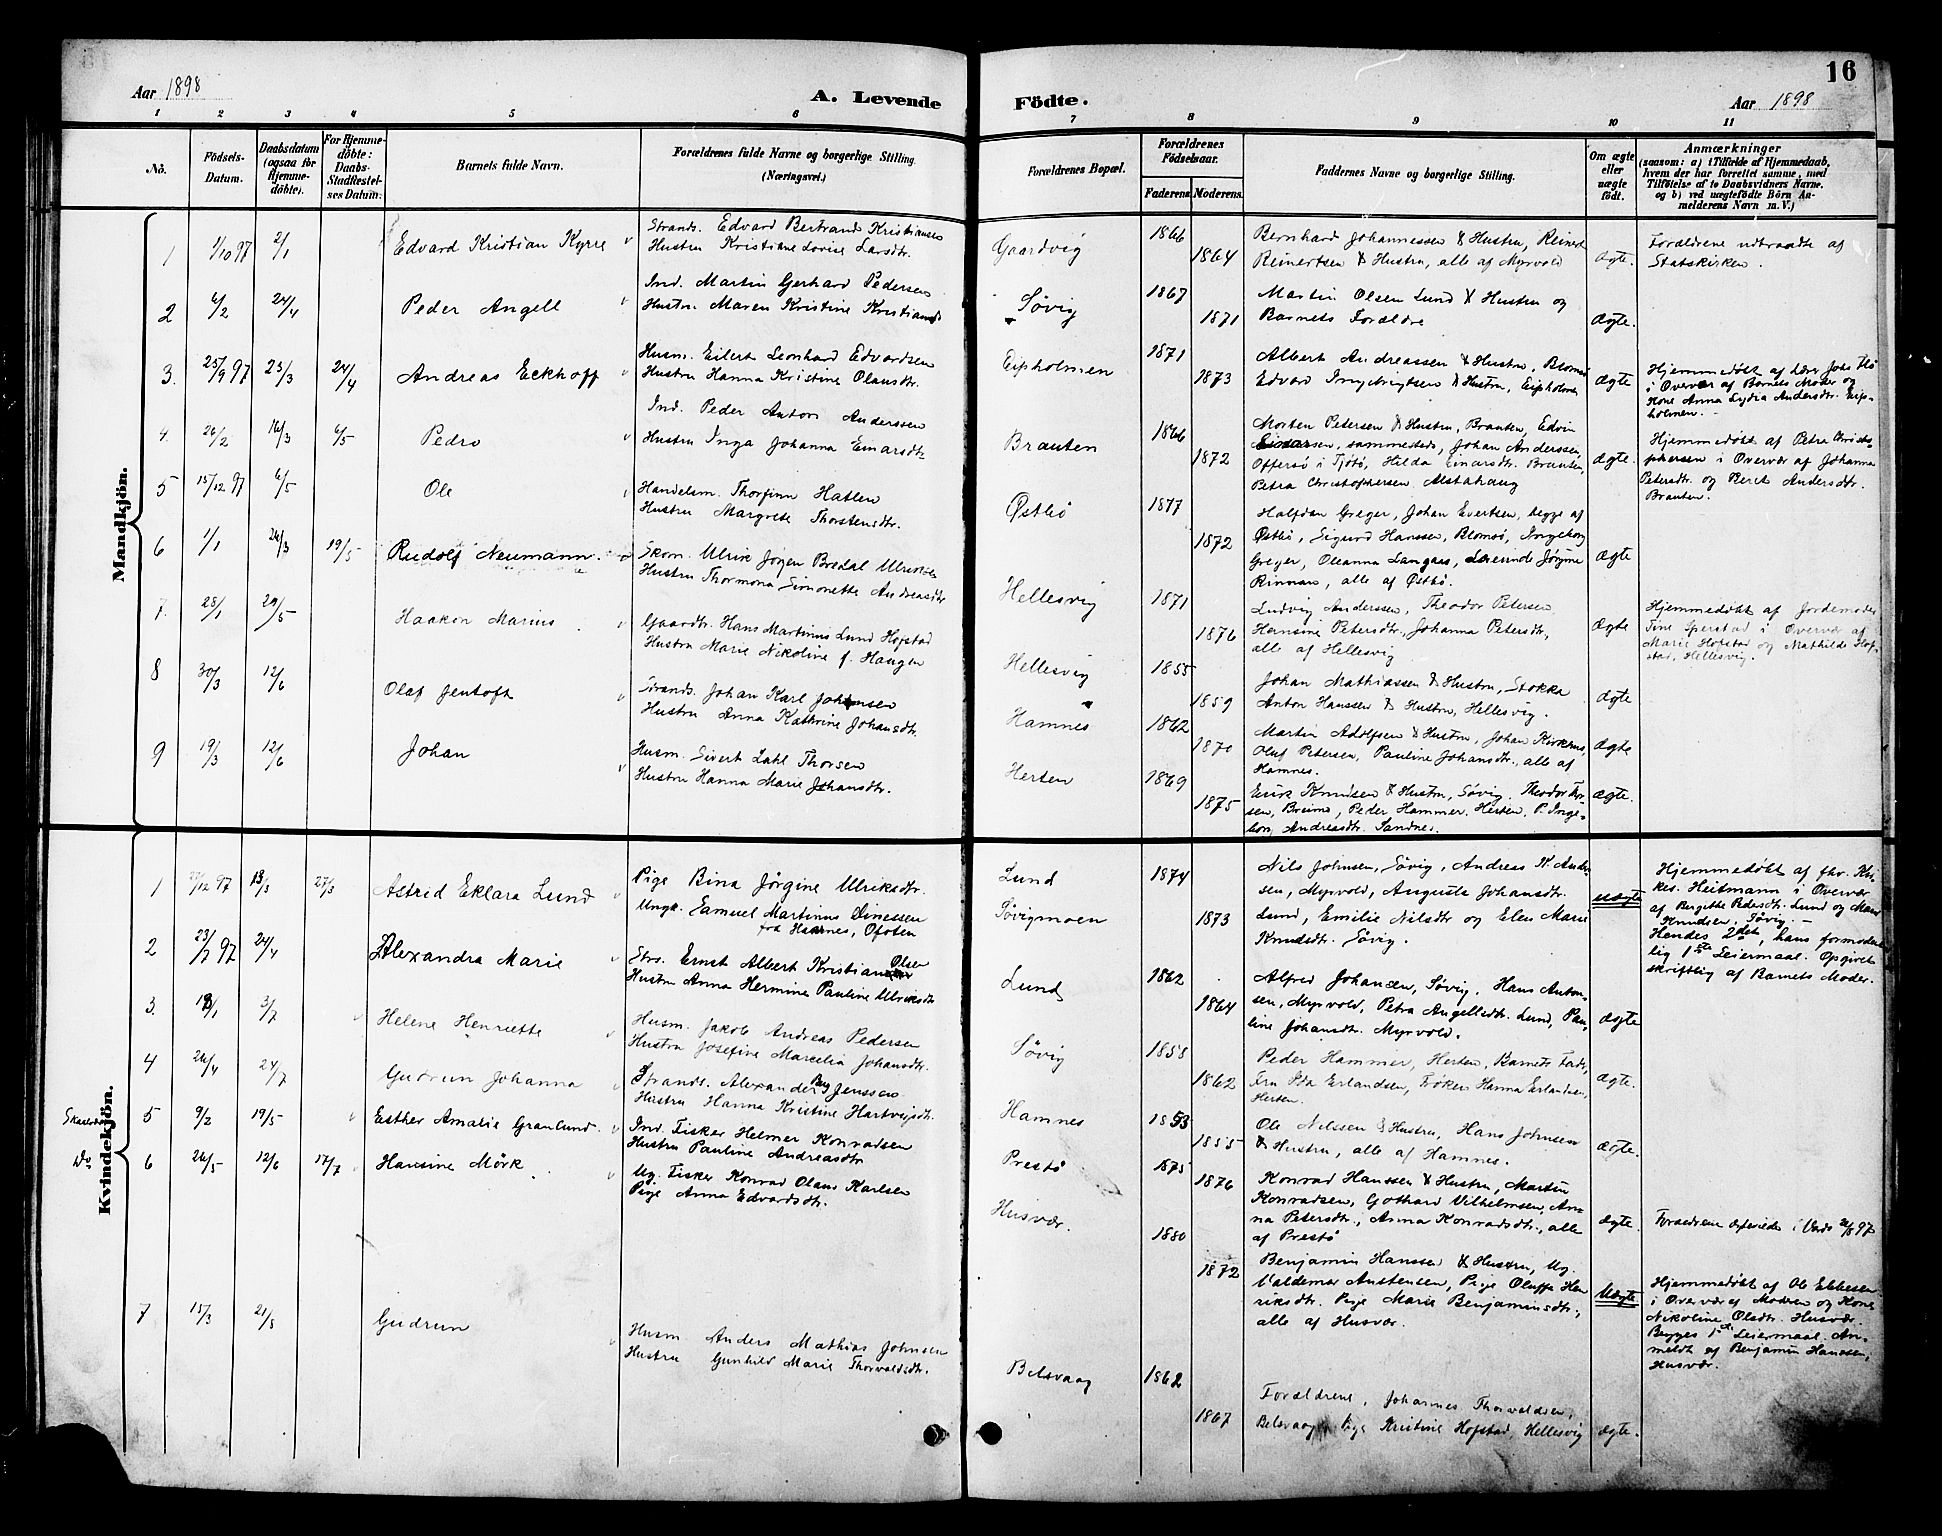 Aar 1898
A. Levende
1 2 3 4 5 6
No.
Födsels-Datum.
Daabsdatum (ogsaa for Hjemmedöbte).
For Hjemmedöbte: Daabs-Stadfæstelses Datum.
Barnets fulde Navn.
Forældrenes fulde Navne og borgerlige Stilling. (Næringsvei.)
Mandkjön.
1 1/10 97 2/1 Edvard Kristian Kyrre
Strands. Edvard Bertrand Kristiansen
Hustru Kristiane Lovise Larsdtr.
2 6/2 24/4 Peder Angell
Ind. Martin Gerhard Pedersen
Hustru Maren Kristine Kristiansd
3. 25/9 97 23/3 24/4 Andreas Eckhoff
Husm. Eilert Leonhard Edvardsen
Hustru Hanna Kristine Olausdtr.
4. 26/2 16/3 6/5 Pedro
Ind. Peder Anton Anderssen
Hustru Inga Johanna Einarsdtr
5 15/12 97 6/5 Ole
Handelsm. Thorfinn Hatlen
Hustru Margrete Thorstensdtr.
6 1/1 26/3 19/5 Rudolf Neumann
Skom. Ulrik Jörgen Bredal Ulriksen
Hustru Thormona Simonette Andreasdtr
7. 28/1 29/5 Haakon Marius
Gaardtr. Hans Martinus Lund Hofstad
Hustru Marie Nikoline f. Haugen
8 30/3 12/6 Olaf Jentoft
Strands. Johan Karl Johansen
Hustru Anna Kathrine Johansdtr.
9 19/3 12/6 Johan
Husm. Sivert Dahl Thorsen
Hustru Hanna Marie Johansdtr.
Kvindekjön.
1 27/12 97 13/3 27/3 Astrid Eklara Lund
Pige Bina Jörgine Ulriksdtr.
Ungk. Samuel Martinus Dinessen
fra Hamnes, Ofoten
2 23/7 97 24/4 Alexandra Marie
Strs. Ernst Albert Kristian Olsen
Hustru Anna Hermine Pauline Ulriksdtr
3. 19/1 3/7 Helene Henriette
Husm. Jakob Andreas Pedersen
Hustru Josefine Marcelia Johansdtr.
4 26/4 24/7 Gudrun Johanna
Strands. Alexander Berg Jenssen
Hustru Hanna Kristine Hartvigsdtr.
5 9/2 19/5 Esther Amalie Granlund
Ind. Fisker Helmer Konradsen
Hustru Pauline Andreasdtr
Do 6 26/5 12/6 17/7 Hansine Mörk
Ug. Fisker Konrad Olaus Karlsen
Pige Anna Edvardsdtr.
7 15/3 21/8 Gudrun
Husm. Anders Mathias Johnsen
Hustru Gunhild Marie Thorvaldsdtr.
16
Födte.
Aar 1898
7 8 9 10 11
Forældrenes Bopæl.
Forældrenes Födselsaar.
Faderens. Moderens.
Faddernes Navne og borgerlige Stilling.
Om ægte eller uægte födt.
Anmærkninger
(saasom: a) i Tilfælde af Hjemmedaab,
hvem der har forrettet samme, med
Tilföielse af to Daabsvidners Navne,
og b) ved uægtefödte Börn An-
melderens Navn m. V.)
Gaardvig 1866 1864
Bernhard Johannessen & Hustru, Reinert
Reinertsen & Hustru, alle af Myrvold
ægte.
Forældrene udtraadte af
Statskirken.
Søvig 1867 1871
Martin Olsen Lund & Hustru og
Barnets Forældre
ægte.
Eipholmen 1871 1873
Albert Andreassen & Hustru, Blomsö
Edvard Ingebrigtsen & Hustru, Eipholmen
Ægte
Hjemmedøbt af Lærer Johs Flö
i Overvær af Barnets Moder og
Kone Anna Lydia Andersdtr. Eip-
holmen.
Brauten 1866 1872
Morten Petersen & Hustru, Brauten, Edvin
Einarsen, sammesteds, Johan Anderssen,
Offersø i Tjøtø, Hilda Einarsdtr. Brauten,
Petra Christophersen Alstahaug
ægte.
Hjemmedøbt af Petra Christo-
phersen i Overvær af Johanna
Petersdtr. og Berit Andersdtr.
Brauten.
Østbö 1877 1872
Halfdan Greger, Johan Evertsen, begge af
Østbö, Sigurd Hanssen, Blomsö, Ingeborg
Greger, Oleanna Langaas, Lærerinde Jörgine
Rinnan, alle af Østbö.
Ægte
Hellesvig 1871 1876
Ludvig Anderssen, Theodor Petersen,
Hansine Petersdtr., Johanna Petersdtr.,
alle af Hellesvig
Ægte
Hjemmedøbt af Jordemoder
Tine Sperstad i Overvær af
Marie Hofstad og Mathilde Hof-
stad, Hellesvig.
Hellesvig 1855 1859
Johan Mathiassen & Hustru, Stokka
Anton Hanssen & Hustru, Hellesvig.
ægte
Hamnes 1862 1870
Martin Adolfsen & Hustru, Johan Kirkhus,
Oluf Petersen, Pauline Johansdtr., alle af
Hamnes.
Ægte
Herten 1869 1875
Erik Knudsen & Hustru, Søvig. Theodor Thor-
sen, Breimo, Peder Hammer. Herten, P. Inge-
bor, Andreasdtr. Sandnes.
ægte.
Lund 1874
Søvigmoen 1873
Nils Johnsen, Søvig, Andreas K. Ander-
sen, Myrvold, Augusta Johansdtr.
Lund, Emilie Nilsdtr og Elen Marie
Knudsdtr. Søvig.
uægte
Hjemmedøbt af fhv. Kir-
kes. Heitmann i Overvær
af Birgitte Pedersdtr. Lund og Mari
Knudsen, Søvig.
Hendes 2det, hans formodent-
lig 1ste Leiermaal. Opgivet
skriftlig af Barnets Moder.
Lund 1862 1864
Alfred Johansen, Søvig. Hans Anton-
sen, Myrvold, Petra Angellsdtr. Lund, Pau-
line Johansdtr. Myrvold.
ægte
Søvig 1858 1862
Peder Hammer, Herten, Barnets Fader,
Fru Ida Erlandsen, Frøken Hanna Erlandsen,
Herten.
Ægte.
Hamnes 1853 1855
Ole Nilssen & Hustru, Hans Johnsen
& Hustru, alle af Hamnes.
ægte.
Prestö 1875 1876
Konrad Hanssen & Hustru, Martin
Konradsen, Gothard Vilhelmsen, An-
na Petersdtr., Anna Konradsdtr., alle
af Prestö
ægte.
Forældrene ægteviede i Vardö 26/8 97
Husvær. 1880 1872
Benjamin Hanssen & Hustru, Ug.
Valdemar Austensen, Pige Oluffa Hen-
riksdtr. Pige Marie Benjaminsdtr.,
alle af Husvær.
Uægte
Hjemmedøbt af Ole Ebbesen
i Overvær af Moderen og Kone
Nikoline Olsdtr. Husvær.
Begges 1ste Leiermaal. An-
meldt af Benjamin Hanssen,
Husvær.
Belsvaag 1862 1867
Forældrene, Johannes Thorvaldsen,
Belsvaag, Pige Kristine Hofstad, Hellesvig
ægte.